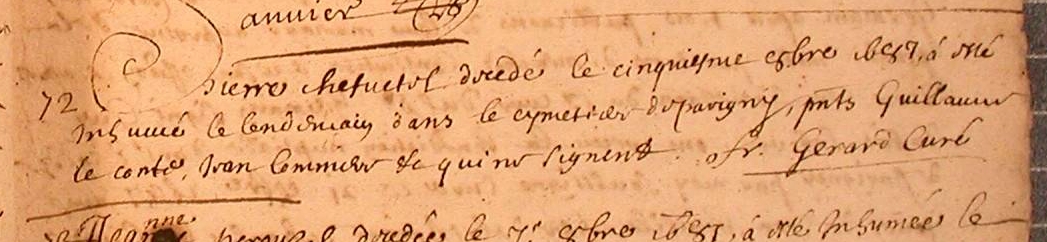 anvier
Pierre chefuetel decedé le cinquiesme 8bre 1687, á esté
72 Inhumé le lendemain dans le cymetiere de pavigny, pnts Guillaume
le conte, Jean Commere &c qui ne signent. fr. Gerard Curé
Jeanne decedée le 7e 8bre 1687, á esté Inhumée le